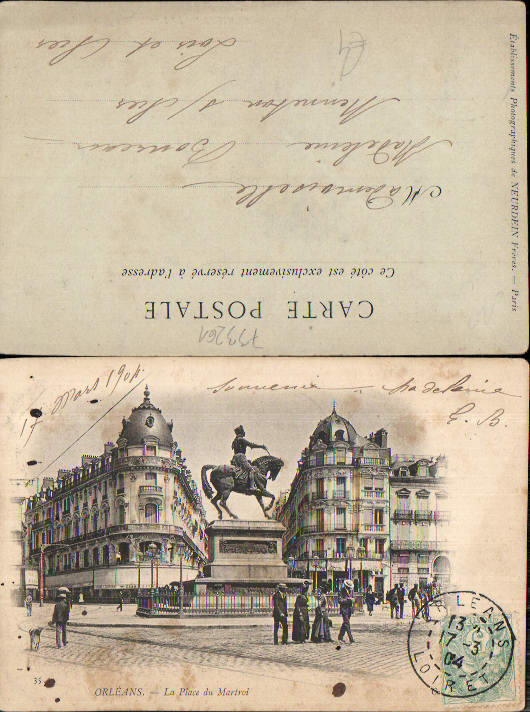 CARTE POSTALE
Ce côté est exclusivement réservé à l'adresse
Mademoiselle
Madeleine
Mennetou s/ Cher
Loir et Cher
733261
Établissements Photographiques de NEURDEIN Frères. — Paris
17 Mars 1904
Souvenir — Madeleine
E. B.
ORLÉANS
13
17 -3
04
LOIRET
35 ORLÉANS. — La Place du Martroi